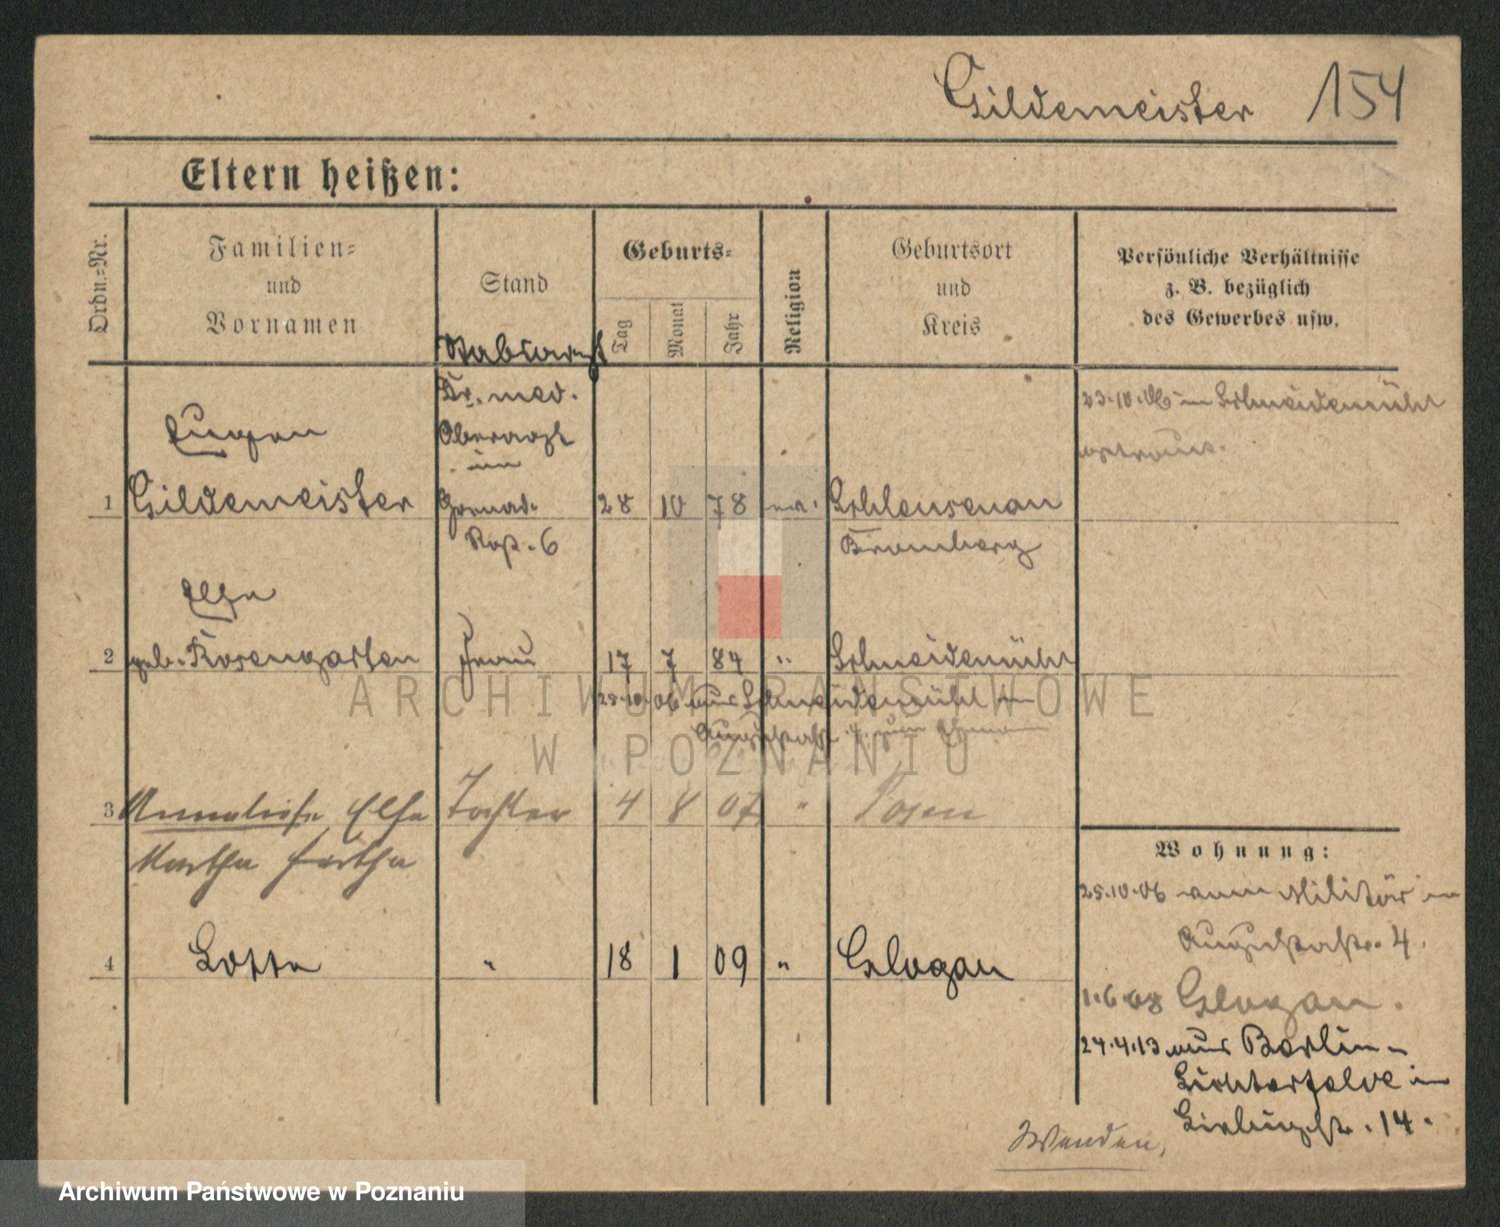 Gildemeister 154
Eltern heißen:
Ordn.=Nr.
Familien=
und
Vornamen
Stand
Geburts=
Tag
Monat
Jahr
Religion
Geburtsort
und
Kreis
Persönliche Verhältnisse
z. B. bezüglich
des Gewerbes usw.
Stabsarzt
Dr. med.
Eugen
Oberarzt
im
1 Gildemeister Grenad. 28 10 78 Schleusenau
Rgt. 6 Bromberg
23.10.06 in Schneidemühl
getraut.
Else
2 geb. Rosengarten Frau 17 7 84 " Schneidemühl
25.10.06 aus Schneidemühl in
Augustastr. 4 zum Ehemann
3 Anneliese Else Tochter 4 8 07 " Posen
Martha Hertha
4 Lotte " 18 1 09 " Glogau
Wohnung:
25.10.06 vom Militär in
Augustastr. 4.
1.6.08 Glogau.
24.4.13 aus Berlin-
Lichterfelde in
14.
Wenden,
ARCHIWUM PAŃSTWOWE
W POZNANIU
Archiwum Państwowe w Poznaniu